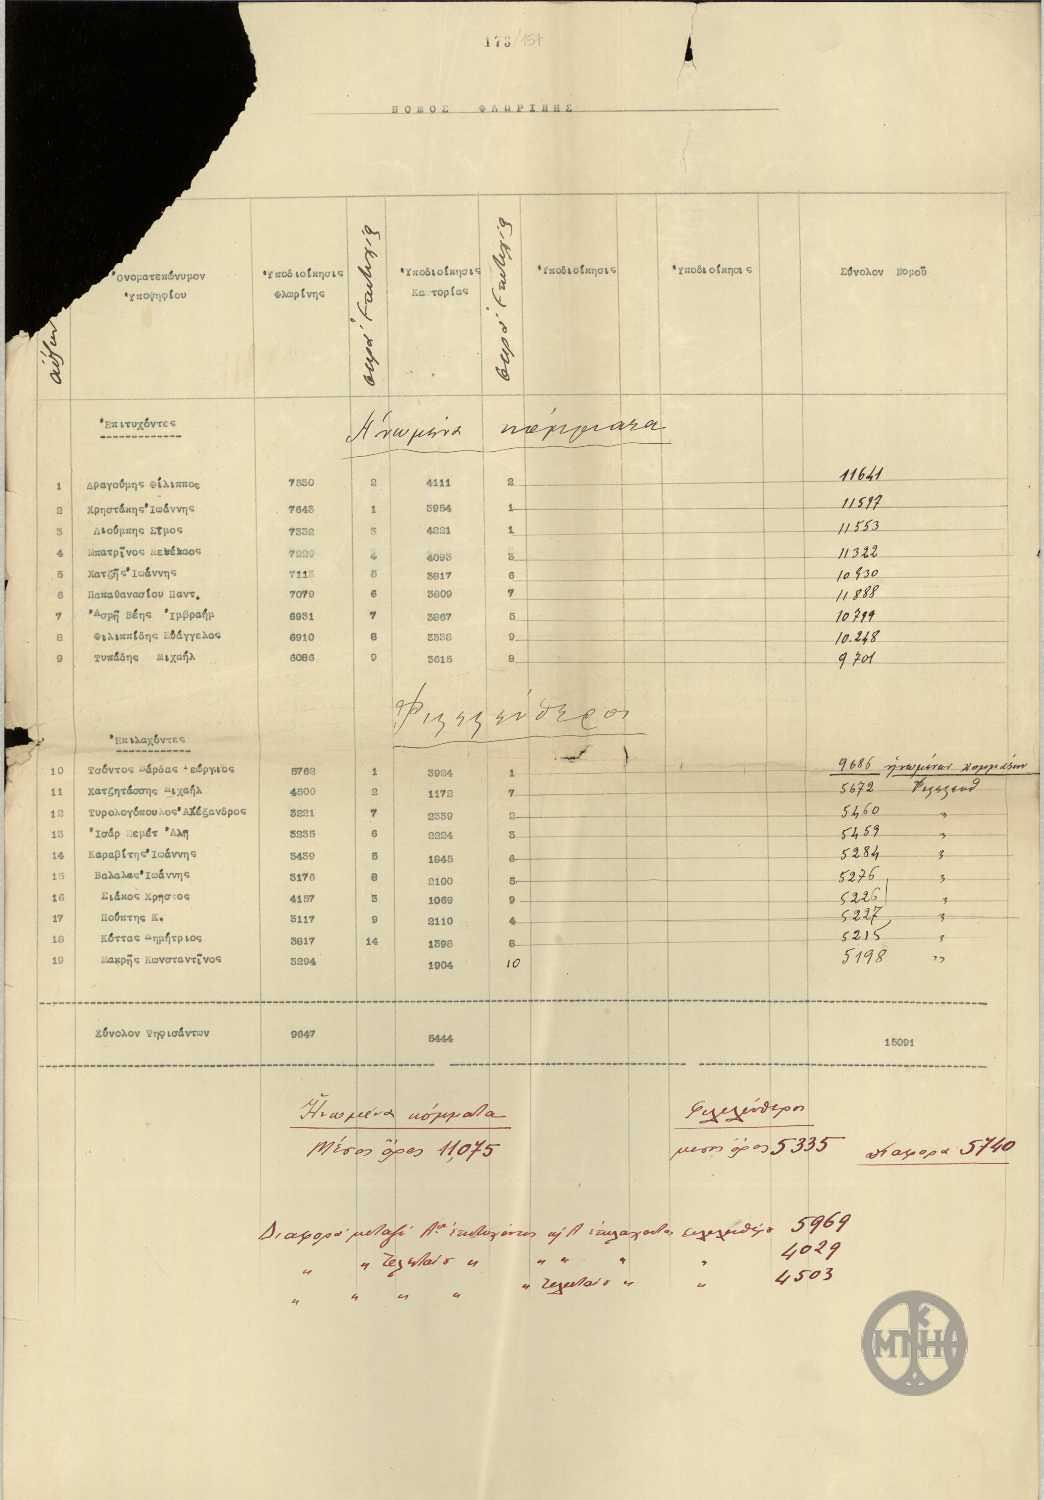 173/157
ΝΟΜΟΣ ΦΛΩΡΙΝΗΣ
Ὀνοματεπώνυμον Ὑποψηφίου
Ὑποδιοίκησις Φλωρίνης
σειρὰ ἐπιτυχίας
Ὑποδιοίκησις Καστορίας
σειρὰ ἐπιτυχίας
Ὑποδιοίκησις
Ὑποδιοίκησις
Σύνολον Νομοῦ
Ἐπιτυχόντες
Ἡνωμένα κόμματα
1 Δραγούμης Φίλιππος 7530 2 4111 2 11641
2 Χρηστάκης Ἰωάννης 7643 1 3954 1 11597
3 Λιούμπης Στμος 7332 3 4221 1 11553
4 Μπατρῖνος Μενέλαος 7229 4 4093 3 11322
5 Χατζῆς Ἰωάννης 7113 5 3817 6 10.930
6 Παπαθανασίου Παντ. 7079 6 3809 7 11.888
7 Ἀσμῆ Βέης Ἰμβραήμ 6931 7 3867 5 10799
8 Φιλιππίδης Εὐάγγελος 6910 8 3338 9 10.248
9 Τυπάδης Μιχαήλ 6086 9 3615 8 9701
Φιλελεύθεροι
Ἐπιλαχόντες
10 Τσόντος Βάρδας Γεώργιος 5762 1 3924 1 9686 ἡνωμένων κομμάτων
11 Χατζητάσσης Μιχαήλ 4500 2 1172 7 5672 Φιλελευθ
12 Τυρολογόπουλος Ἀλέξανδρος 3221 7 2239 2 5460 "
13 Ἰσάρ Μεμέτ Ἀλῆ 3235 6 2224 3 5459 "
14 Καραβίτης Ἰωάννης 3439 5 1845 6 5284 "
15 Βαλαλας Ἰωάννης 3176 8 2100 5 5276 "
16 Σιάκος Χρηστος 4157 3 1069 9 5226 "
17 Πούπτης Κ. 3117 9 2110 4 5227 "
18 Κόττας Δημήτριος 3817 14 1398 8 5215 "
19 Μακρῆς Κωνσταντῖνος 3294 1904 10 5198 "
Σύνολον Ψηφισάντων 9647 5444 15091
Ἡνωμένα κόμματα Φιλελεύθεροι
Μέσος ὅρος 11,075 μέσος ὅρος 5335 διαφορά 5740
Διαφορὰ μεταξὺ Αου ἐπιτυχόντος κ Α ἐπιλαχόντος φιλελευθέρου 5969
" " τελευταίου " " " " " 4029
" " " " " τελευταίου " " 4503
ΜΠΝΗ